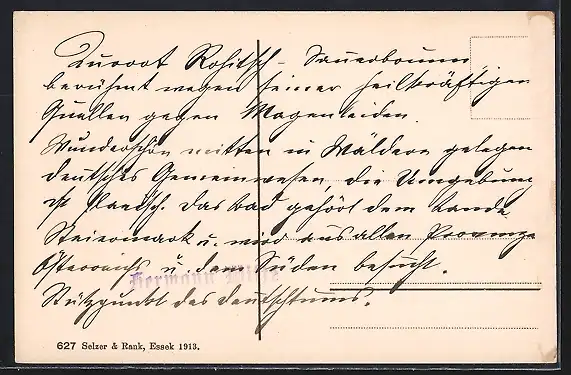 Kurort Rohitsch-Sauerbrunn,
berühmt wegen seiner heilkräftigen
Quellen gegen Magenleiden.
Wunderschön mitten in Wäldern gelegen
deutsches Gemeinwesen, die Umgebung
ist slavisch. Das Bad gehört dem Lande
Steiermark u. wird aus allen Provinzen
Österreichs u. dem Süden besucht.
Hermann
Stützpunkt des Deutschtums.
627 Selzer & Rank, Essek 1913.